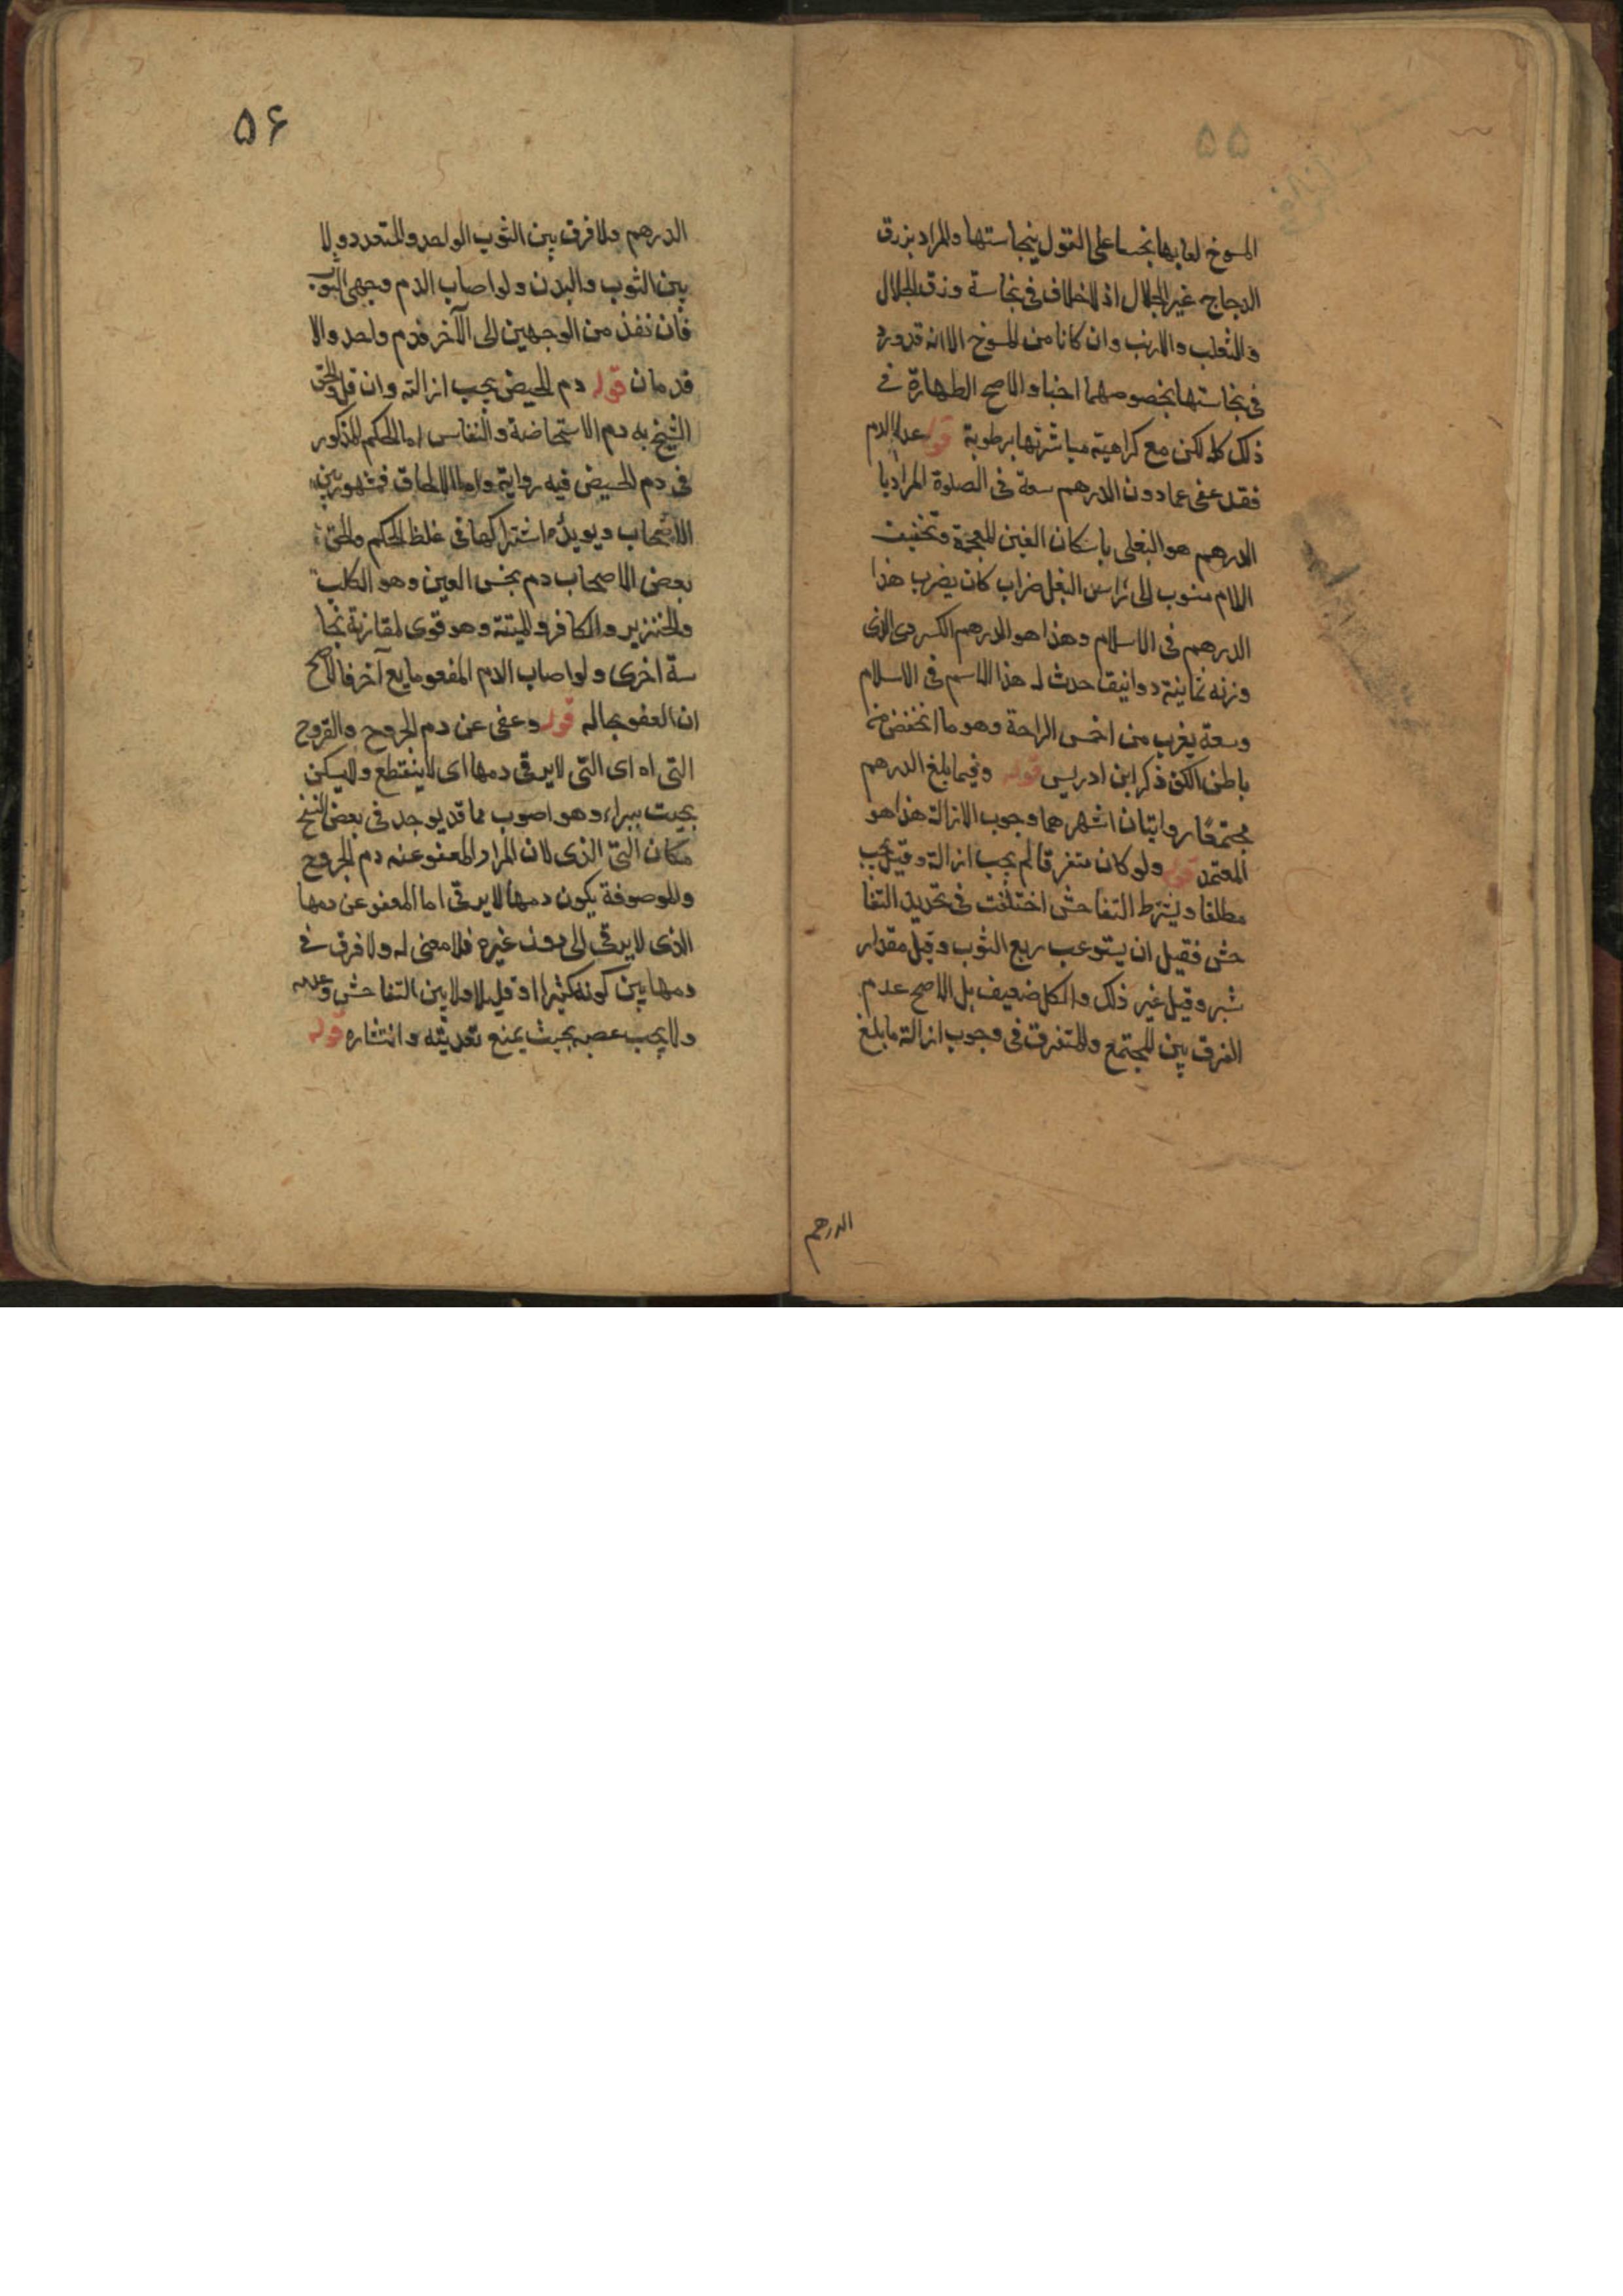 ۵۵
المسوخ لعابها نجسا على القول بنجاستها والمراد بزرق
الدجاج غير الجلال اذ لا خلاف فى نجاسة وزق الجلال
والثعلب والارنب وان كانا من المسوخ الا انه قد ورد
فى نجاستها بخصومهما اخبار والاصح الطهارة فى
ذلك كله لكن مع كراهية مباشرتها برطوبة قوله عدا الدم
فقد عفى عما دون الدرهم سعة فى الصلوة المراد با
الدرهم هو البغلى باسكان الغين المعجمة وتخفيف
اللام منسوب الى راس البغل ضراب كان يضرب هذا
الدرهم فى الاسلام وهذا هو الدرهم الكسروى الذى
وزنه ثمانية دوانيق احدث له هذا الاسم فى الاسلام
وسعة يقرب من اخمس الراحة وهو ما انخفض من
باطن الكف ذكر ابن ادريس قوله وفيما بلغ الدرهم
مجتمعًا روايتان اشهرهما وجوب الازالة هذا هو
المعتمد قوله ولو كان متفرقا لم يجب ازالة وقيل يجب
مطلقا ويشترط التفاحش اختلفت فى تحديد التفا
حش فقيل ان يستوعب ربع الثوب وقيل مقدار
شبر وقيل غير ذلك والكل ضعيف بل الاصح عدم
الفرق بين المجتمع والمتفرق فى وجوب ازالة ما بلغ
الدرهم
۵۶
الدرهم ولا فرق بين الثوب الواحد والمتعدد ولا
بين الثوب والبدن ولو اصاب الدم وجهى الثوب
فان نفذ من الوجهين الى الآخر فدم واحد والا
فدمان قوله دم الحيض يجب ازالته وان قل والحق
الشيخ به دم الاستحاضة والنفاس اما الحكم المذكور
فى دم الحيض فيه رواية واما الالحاق فمشهور بين
الاصحاب ويويده اشتراكها فى غلظ الحكم والحق
بعض الاصحاب دم نجس العين وهو الكلب
والخنزير والكافر والميتة وهو قوى لمقارنة نجا
سة اخرى ولو اصاب الدم المعفو مايع آخر فالاصح
ان العفو بحاله قوله وعفى عن دم الجروح والقروح
التى اه اى التى لا يرقى دمها اى لا ينقطع ولا يسكن
بحيث يبراء وهو اصوب مما قد يوجد فى بعض النسخ
مكان التى الذى لان المراد المعفو عنه دم الجروح
والموصوفة يكون دمها لا يرقى اما المعفو عن دمها
الذى لا يرقى الى دون غيره فلا معنى له ولا فرق فى
دمها بين كونه كثيرا او قليلا ولا بين التفاحش وعدمه
ولا يجب عصبه بحيث يمنع تعديته وانتشاره قوله